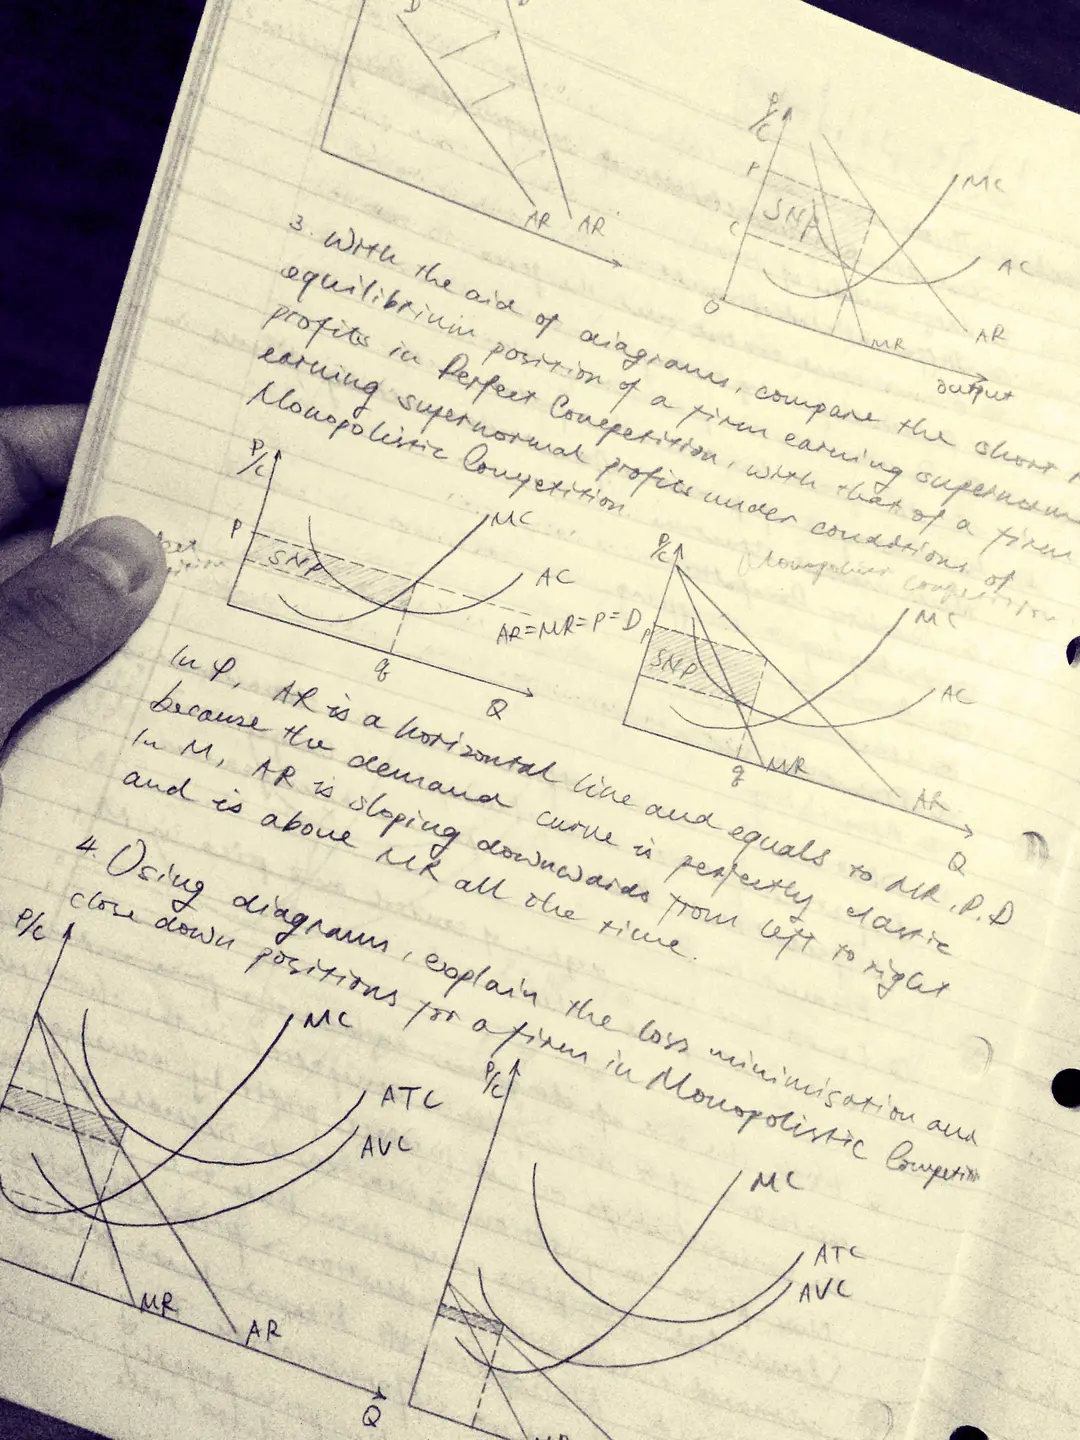 D
AR AR'
P/c
P
SNP
C
MC
AC
O
MR
AR
output
3. With the aid of diagrams, compare the short
equilibrium position of a firm earning
profits in Perfect Competition, with that of a firm
earning supernormal profits under conditions of
Monopolistic Competition.
P/c
P
SNP
MC
AC
AR=MR=P=D
q
Q
P/c
P
SNP
MC
AC
q
MR
AR
Q
In P, AR is a horizontal line and equals to MR, P, D
because the demand curve is perfectly elastic
In M, AR is sloping downwards from left to right
and is above MR all the time.
4. Using diagrams, explain the loss minimisation and
close down positions for a firm in Monopolistic
P/c
MC
ATC
AVC
MR
AR
Q
P/c
MC
ATC
AVC